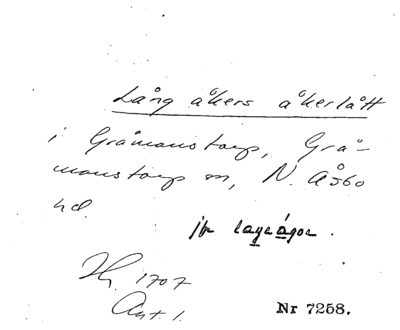 Lång åkers åkerlått
i Gråmanstorp, Grå-
manstorps sn, N. Åsbo
hd.
jfr
Hr. 1707
Ant. 1.
Nr 7258.